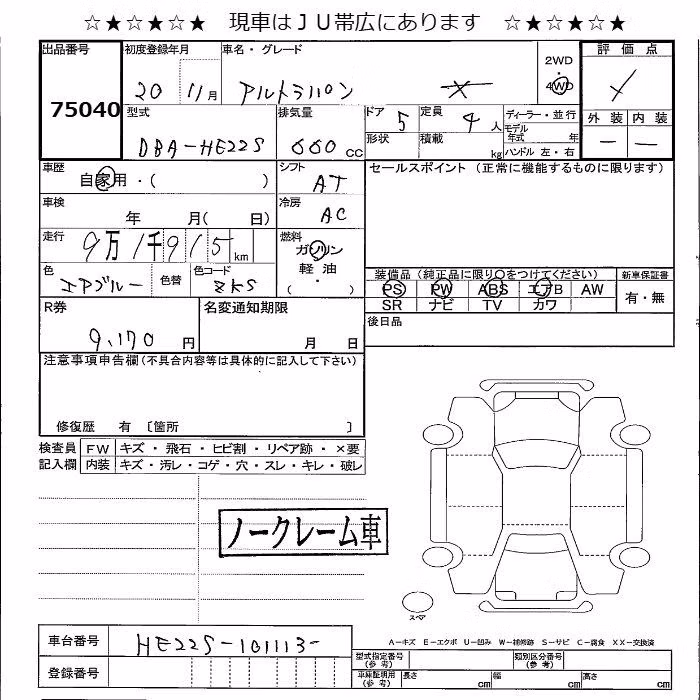 ☆★☆★☆★ 現車はＪＵ帯広にあります ☆★☆★☆★
出品番号 初度登録年月 車名・グレード 2WD 評価点
20 11月 アルトラパン × 4WD
75040 型式 排気量 ドア 5 定員 4人 ディーラー・並行 外装 内装
モデル年式 年
DBA-HE22S 660cc 形状 積載 kg ハンドル 左・右 — —
車歴 自家用・( ) シフト AT セールスポイント (正常に機能するものに限ります)
車検 年 月( 日) 冷房 AC
走行 9万1千915km 燃料 ガソリン
軽油
・
( )
色 エアブルー 色替 色コード ZKS
装備品 (純正品に限り○をつけてください) 新車保証書
PS PW ABS エアB AW 有・無
SR ナビ TV カワ
R券 9,170円 名変通知期限 月 日 後日品
注意事項申告欄 (不具合内容等は具体的に記入して下さい)
修復歴 有 〔箇所 〕
検査員 FW キズ・飛石・ヒビ割・リペア跡・×要
記入欄 内装 キズ・汚レ・コゲ・穴・スレ・キレ・破レ
ノークレーム車
スペア
A-キズ E-エクボ U-凹み W-補修跡 S-サビ C-腐食 XX-交換済
車台番号 HE22S-101113-
型式指定番号(参考) 類別区分番号(参考)
登録番号 車庫証明用(参考) 長さ cm 幅 cm 高さ cm